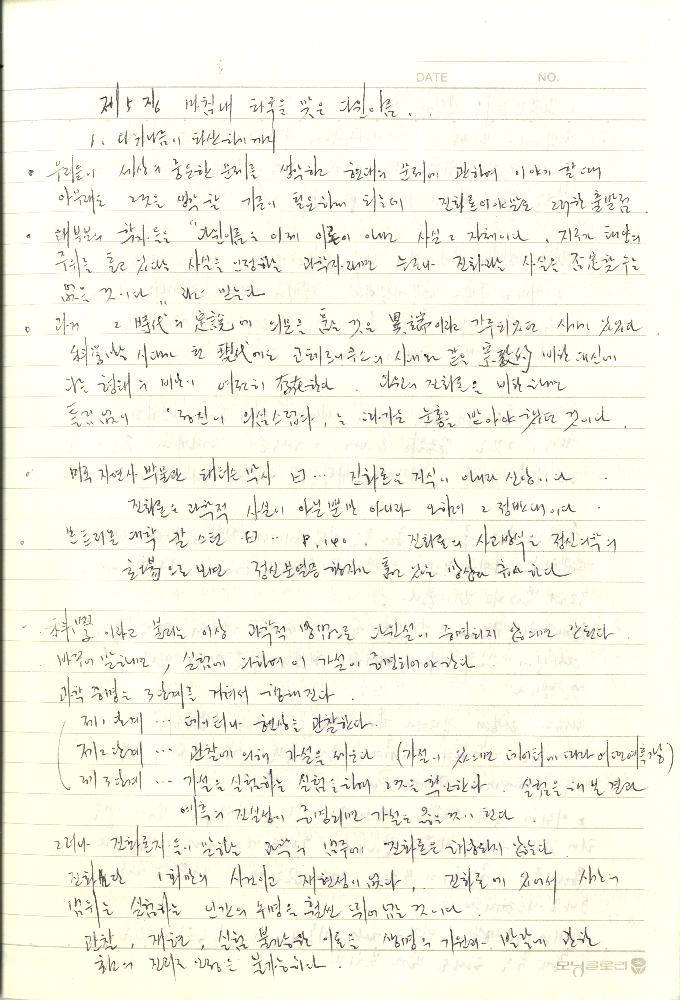 DATE NO.
제 5 장 마침내 파국을 맞은 다윈이즘 . .
1. 다키니즘이 파산하기 까지
• 우리들이 세상의 중요한 문제를 생각하고 현대의 문제에 관하여 이야기 할 때
아무래도 그것을 생각 할 기준이 필요하게 되는데 진화론이야말로 그러한 출발점.
• 대부분의 학자들은 "다윈이즘은 이제 이론이 아니고 사실 그 자체이다. 지구가 태양의
주위를 돌고 있다는 사실을 인정하는 과학자라면 누구나 진화라는 사실을 부정할 수는
없을 것이다" 라고 믿는다
• 과거 그 時代의 定說에 의문을 품는 것은 異端이라고 간주되었던 시대가 있었다
시대인 현 現代에도 코페르니쿠스의 시대와 같은 宗敎的 비판 대신에
다른 형태의 비난이 여전히 존在한다. 다윈의 진화론을 비판하면
틀림없이 '정신이 의심스럽다'는 차가운 눈총을 받아야 했던 것이다.
미국 자연사 박물관 패터슨 박사 曰 … 진화론은 지식이 아니라 신앙이다
진화론은 과학적 사실이 아닐 뿐만 아니라 오히려 그 정반대이다.
몬트리올 대학 칼 스턴 曰 … P. 140. 진화론의 사고방식은 정신의학의
으로 보면 정신분열증 환자가 품고 있는 망상과 하다
이라고 불리는 이상 과학적 방법으로 다윈설이 증명되지 않으면 안된다.
바꾸어 말하면, 실험에 의하여 이 가설이 증명되어야 한다.
과학 증명은 3단계를 거쳐서 행해진다.
제1단계 … 데이터나 현상을 관찰한다.
제2단계 … 관찰에 의해 가설을 세운다 (가설이 있으면 데이터에 따라 어떤 예측 가능)
제3단계 … 가설을 실험하는 실험을 하여 그것을 확인한다 실험을 해 본 결과
예측의 진실성이 증명되면 가설은 옳은 것이 된다.
그러나 진화론자들이 말하는 과학의 범주에 진화론은 해당되지 않는다.
진화란 1회만의 사건이고 재현성이 없다. 진화론에 있어서 시간의
범위는 실험하는 인간의 수명을 훨씬 뛰어 넘는 것이다.
관찰, 재현, 실험 불가능한 이론은 생명의 기원과 발달에 관한
진리라 인정은 불가능하다.
모닝글로리